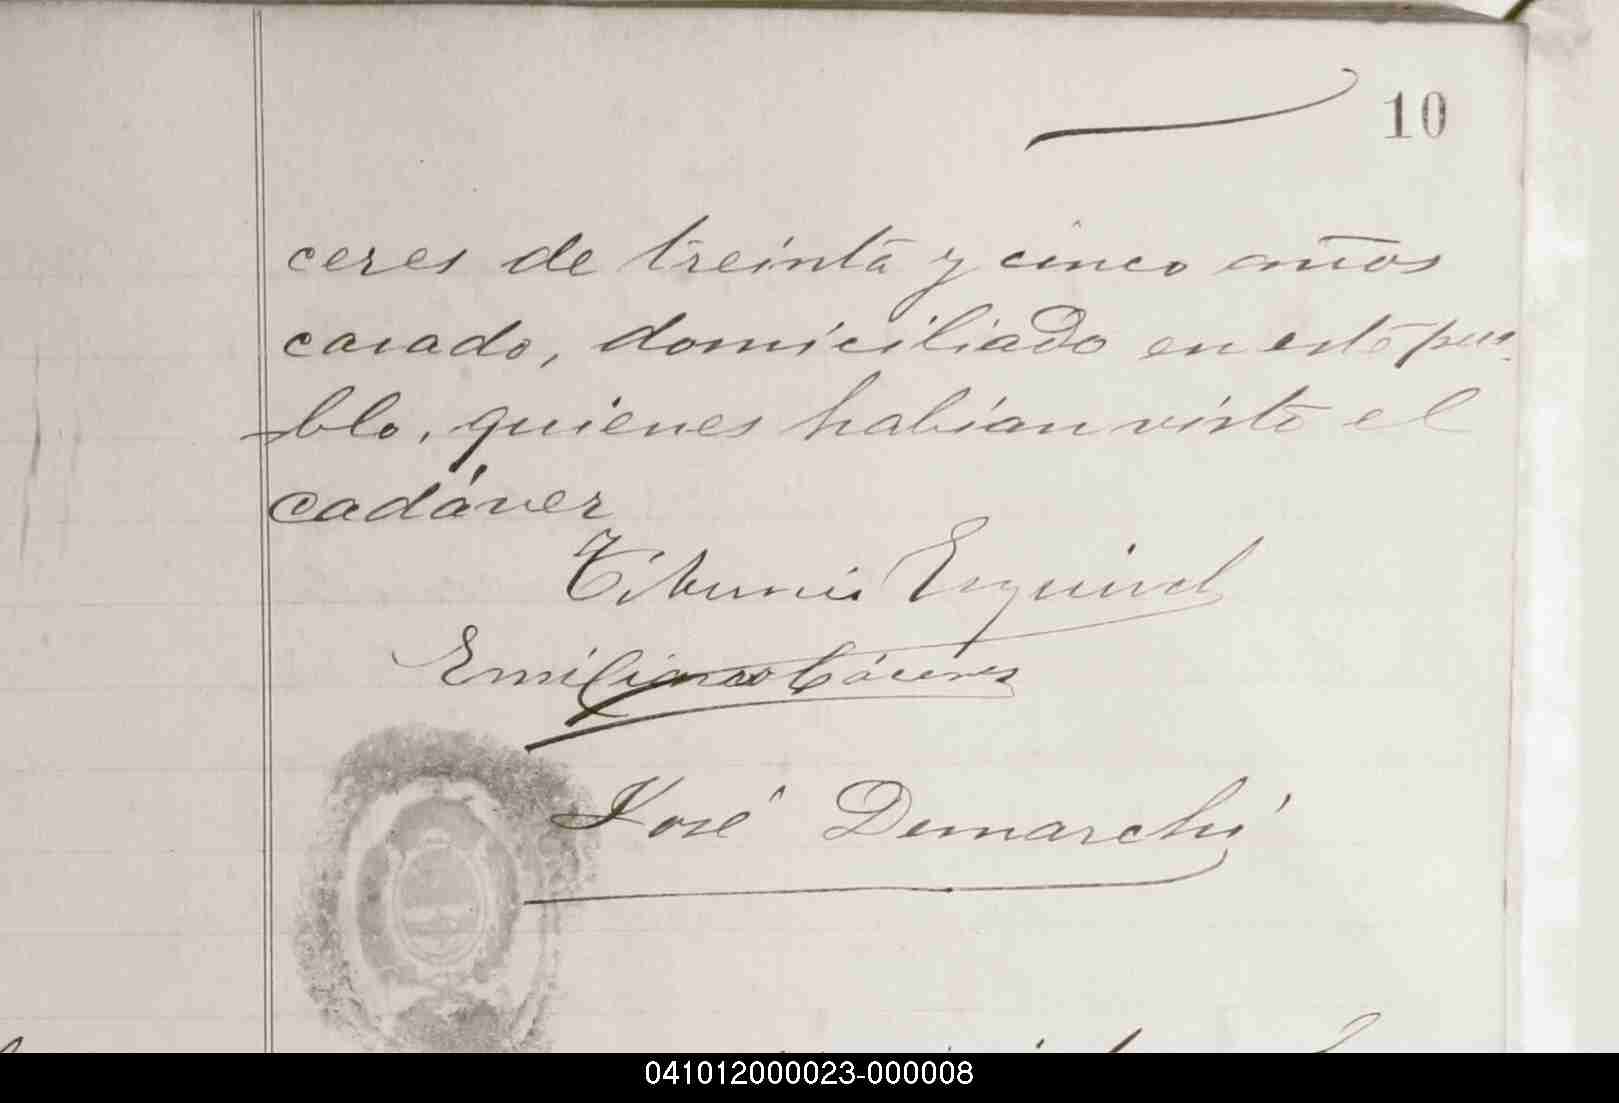 10
ceres de treinta y cinco años
casado, domiciliado en este pue-
blo, quienes habian visto el
cadáver
Tiburcio Esquivel
Emiliano Cáceres
José Demarchi
041012000023-000008